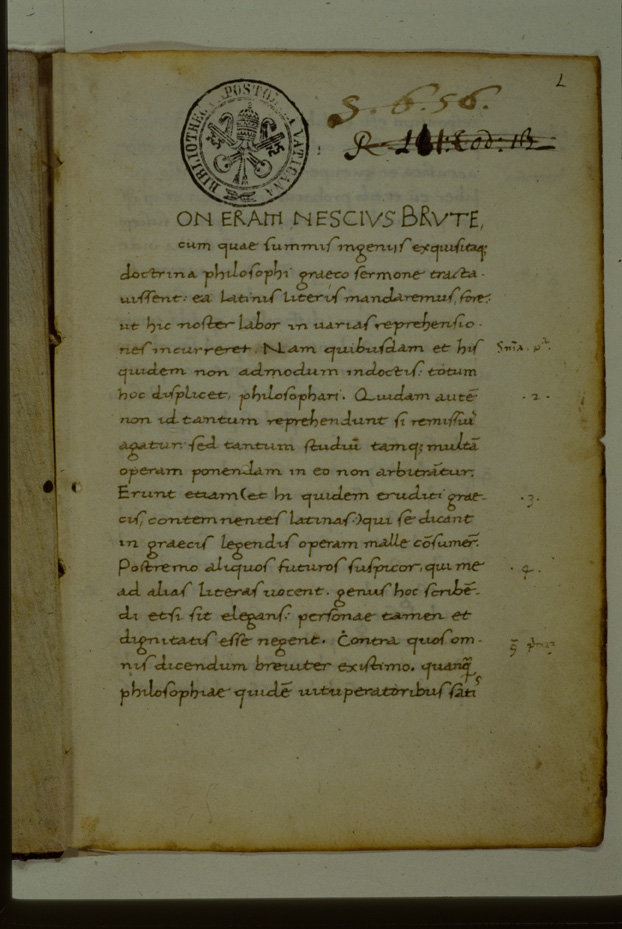 L
S. 6. 56.
BIBLIOTHECA APOSTOLICA VATICANA
ON ERAM NESCIVS BRVTE,
cum quae summis ingeniis exquisitaq;
doctrina philosophi graeco sermone tracta-
uissent: ea latinis literis mandaremus, fore:
ut hic noster labor in uarias reprehensio-
nes incurreret. Nam quibusdam et his
quidem non admodum indoctis: totum
hoc displicet, philosophari. Quidam autē
non id tantum reprehendunt si remissiuˢ
agatur: sed tantum studiū tamq; multā
operam ponendam in eo non arbitrātur.
.2.
Erunt etiam (et hi quidem eruditi grae-
cis, contemnentes latinas.) qui se dicant
.3.
in graecis legendis operam malle cōsumer̄.
Postremo aliquos futuros suspicor, qui me
.4.
ad alias literas uocent. genus hoc scribē-
di etsi sit elegans: personae tamen et
dignitatis esse negent. Contra quos om-
nis dicendum breuiter existimo. quanq̄
philosophiae quidē uituperatoribus satis